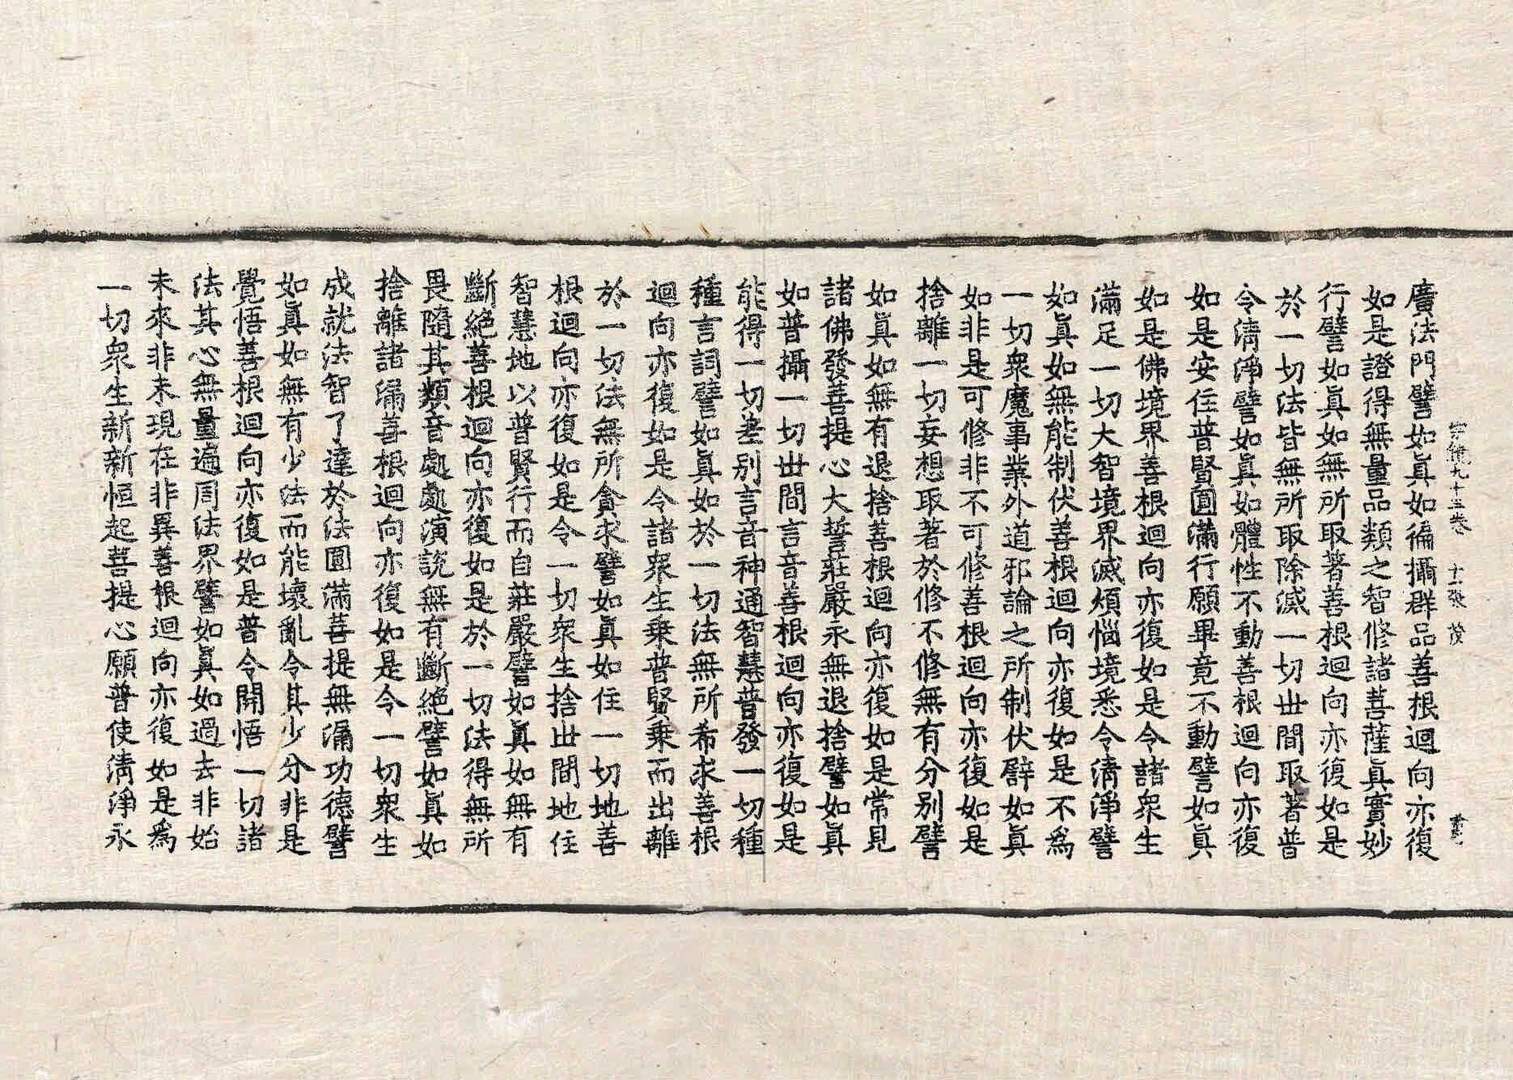 宗鏡九十五卷 十一張 茂
廣法門譬如眞如徧攝群品善根迴向亦復
如是證得無量品類之智修諸菩薩眞實妙
行譬如眞如無所取著善根迴向亦復如是
於一切法皆無所取除滅一切世間取著普
令清淨譬如眞如體性不動善根迴向亦復
如是安住普賢圓滿行願畢竟不動譬如眞
如是佛境界善根迴向亦復如是令諸衆生
滿足一切大智境界滅煩惱境悉令清淨譬
如眞如無能制伏善根迴向亦復如是不爲
一切衆魔事業外道邪論之所制伏譬如眞
如非是可修非不可修善根迴向亦復如是
捨離一切妄想取著於修不修無有分別譬
如眞如無有退捨善根迴向亦復如是常見
諸佛發菩提心大誓莊嚴永無退捨譬如眞
如普攝一切世間言音善根迴向亦復如是
能得一切差別言音神通智慧普發一切種
種言詞譬如眞如於一切法無所希求善根
迴向亦復如是令諸衆生乘普賢乘而出離
於一切法無所貪求譬如眞如住一切地善
根迴向亦復如是令一切衆生捨世間地住
智慧地以普賢行而自莊嚴譬如眞如無有
斷絕善根迴向亦復如是於一切法得無所
畏隨其類音處處演說無有斷絕譬如眞如
捨離諸漏善根迴向亦復如是令一切衆生
成就法智了達於法圓滿菩提無漏功德譬
如眞如無有少法而能壞亂令其少分非是
覺悟善根迴向亦復如是普令開悟一切諸
法其心無量遍周法界譬如眞如過去非始
未來非末現在非異善根迴向亦復如是爲
一切衆生新新恒起菩提心願普使清淨永